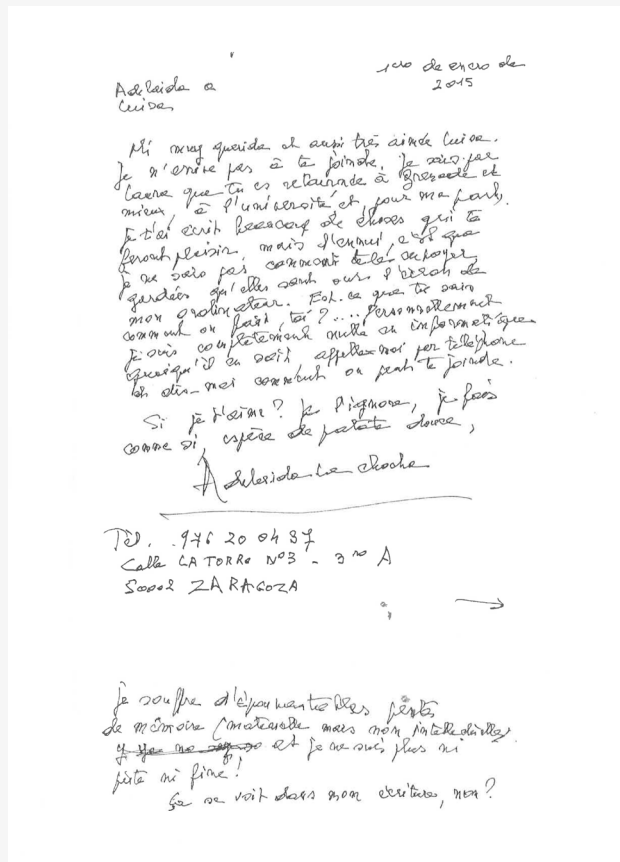 1ero de enero de
2015
Adelaida a
Luisa,
Mi muy querida et aussi très aimée Luisa.
Je n'arrive pas à te joindre. Je sais par
Laura que tu es retournée à Grenade et
mieux, à l'université et, pour ma part,
je t'ai écrit beaucoup de choses qui te
feront plaisir, mais l'ennui, c'est que
je ne sais pas comment te les envoyer,
gardées qu'elles sont sur l'écran de
mon ordinateur. Est-ce que tu sais
comment on fait, toi? .... Personnellement
je suis complètement nulle en informatique.
Quoiqu'il en soit appelles-moi par téléphone
et dis-moi comment on peut te joindre.
Si je t'aime? Je l'ignore, je fais
comme si, espèce de patate douce,
Adelaida La Chocha
Tél. 976 20 04 37
Calle LA TORRE Nº3 - 3ro A
50002 ZARAGOZA
→
je souffre d'épouvantables pertes
de mémoire (matérielle mais non intellectuelle)
et je ne suis plus ni
fute ni fine!
Ça se voit dans mon écriture, non?